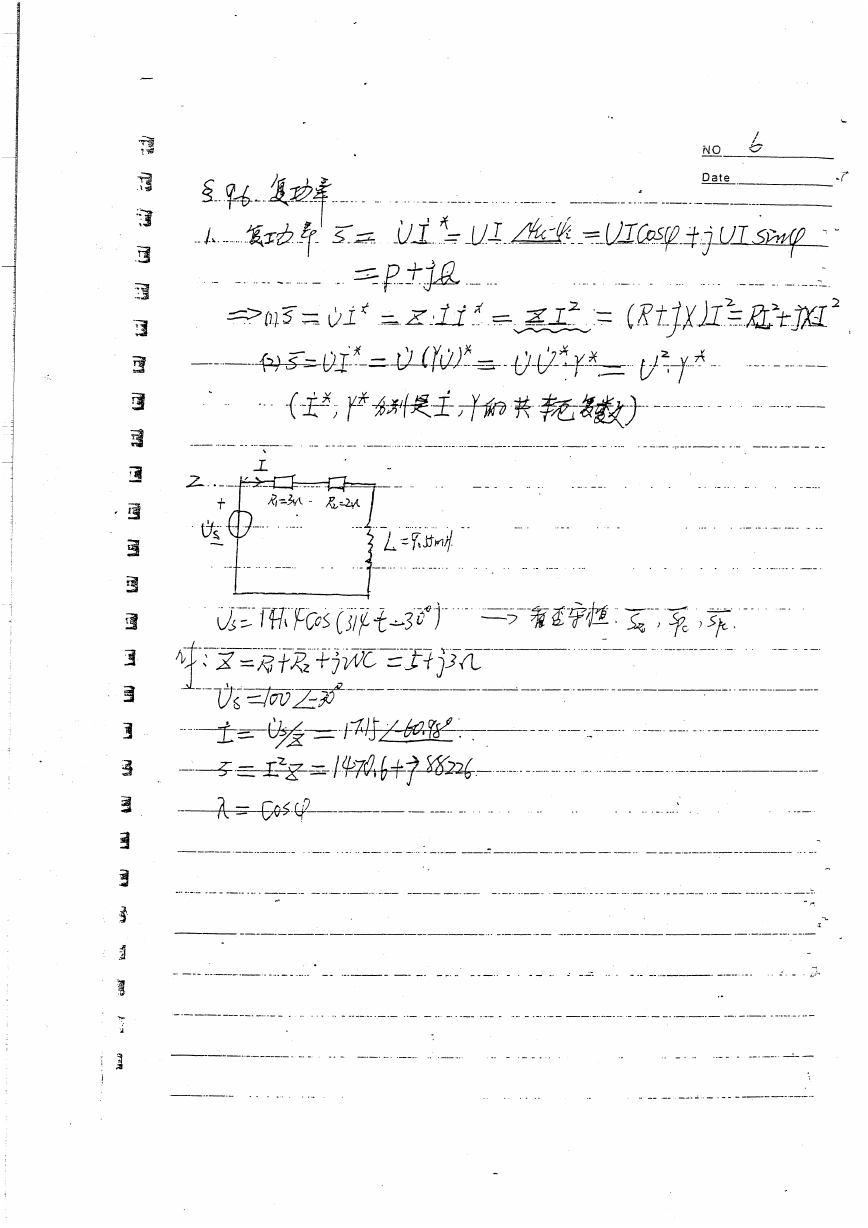 NO 6
Date
§ 9.6 复功率
1. 复功率 S̄ = U̇İ* = UI∠ψu-ψi = UICosφ + jUI sinφ
= P + jQ
⇒ (1) S̄ = U̇İ* = Z·İİ* = ZI² = (R+jX)I² = RI²+jXI²
(2) S̄ = U̇İ* = U̇(YU̇)* = U̇U̇*·Y* = U²·Y*
(İ*, Y* 分别是 İ, Y 的共轭复数)
İ
2.
+ R₁=3Ω - R₂=2Ω
U̇s
L = 9.55mH
Us = 141.4 Cos(314t-30°) → 看是否守恒.
: Z = R₁+R₂+jWC = 5+j3Ω
U̇s = 100∠-30°
İ = U̇s/Z = 17.15∠-60.98°
S̄ = I²Z = 1470.6+j 88226
λ = Cosφ